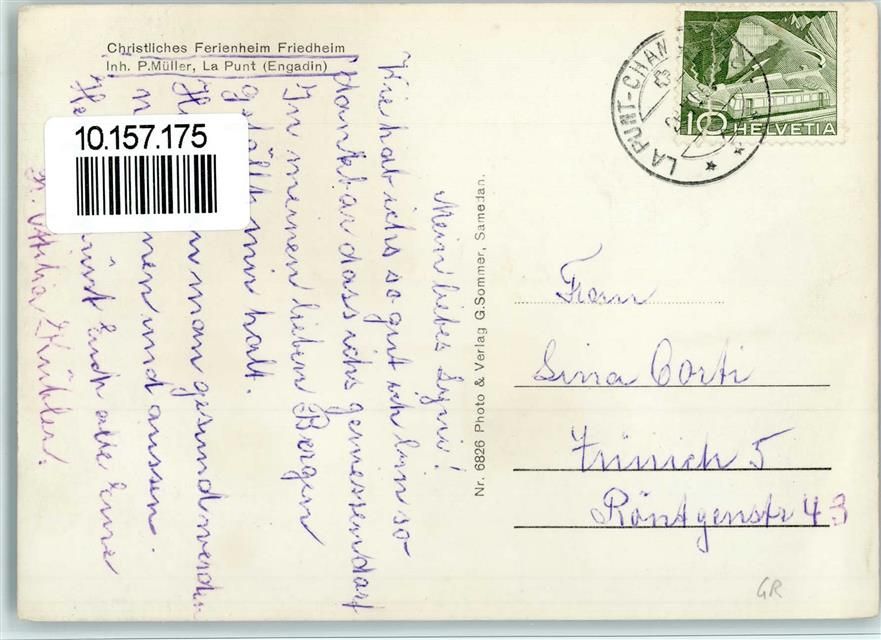 Christliches Ferienheim Friedheim
Inh. P.Müller, La Punt (Engadin)
10.157.175
LA PUNT-CHAM
10 HELVETIA
Mein liebes Lyni!
Wie hab ichs so gut ich bin so
dankbar dass ichs geniessen darf
In meinen lieben Bergen
gefällt mir halt.
man gesund werden
nen und aussen.
Euch alle Eure
Nr. 6826 Photo & Verlag G.Sommer, Samedan.
Frau
Lina Corti
Zürich 5
Röntgenstr 43
GR